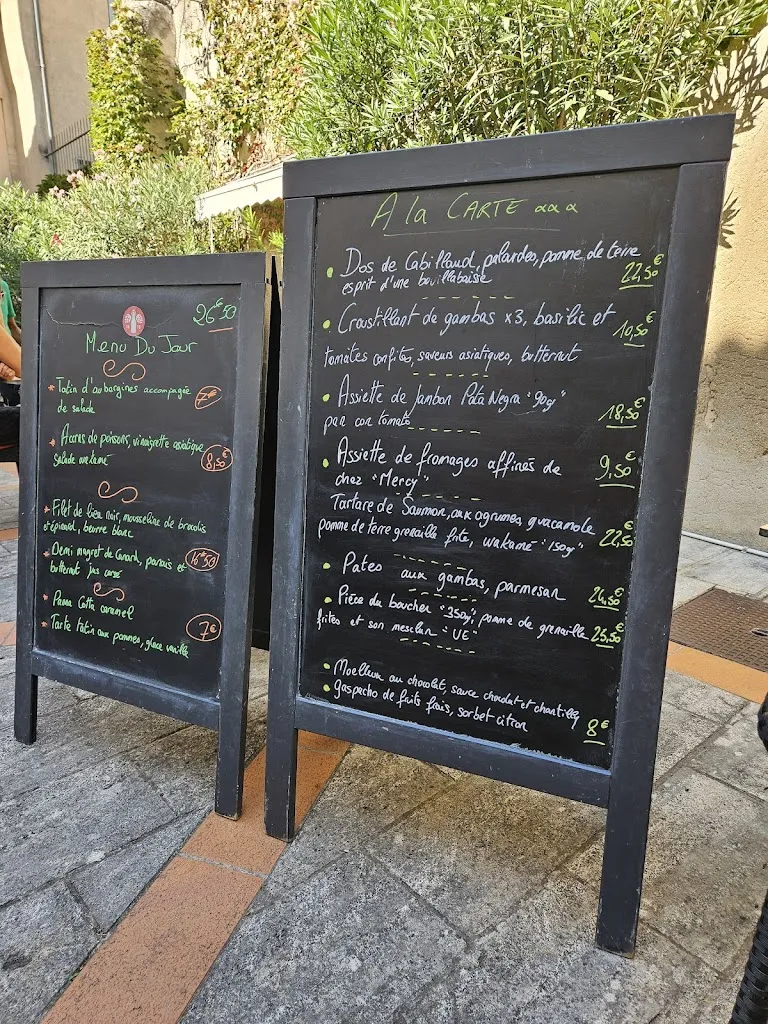 26€50
Menu Du Jour
* Tatin d'aubergines accompagnée
de salade 7€
* Acras de poissons, vinaigrette asiatique
salade wakamé 8,50€
* Filet de lieu noir, mousseline de brocolis
et épinard, beurre blanc
* Demi magret de Canard, panais et
butternut jus corsé 16€50
* Panna Cotta caramel
* Tarte tatin aux pommes, glace vanille 7€
A la CARTE
• Dos de Cabillaud, palourdes, pomme de terre
esprit d'une bouillabaisse 22,50€
• Croustillant de gambas x3, basilic et
tomates confites, saveurs asiatiques, butternut 10,50€
• Assiette de Jambon Pata Negra "90g"
pan con tomate 18,50€
• Assiette de fromages affinés de
chez "Mercy" 9,50€
Tartare de Saumon, aux agrumes, guacamole
pomme de terre grenaille frite, wakamé "150g" 22,50€
• Pates aux gambas, parmesan 24,50€
• Pièce du boucher "350g", pomme de grenaille
frites et son mesclun "UE" 25,50€
• Moelleux au chocolat, sauce chocolat et chantilly
• Gaspacho de fruits frais, sorbet citron 8€